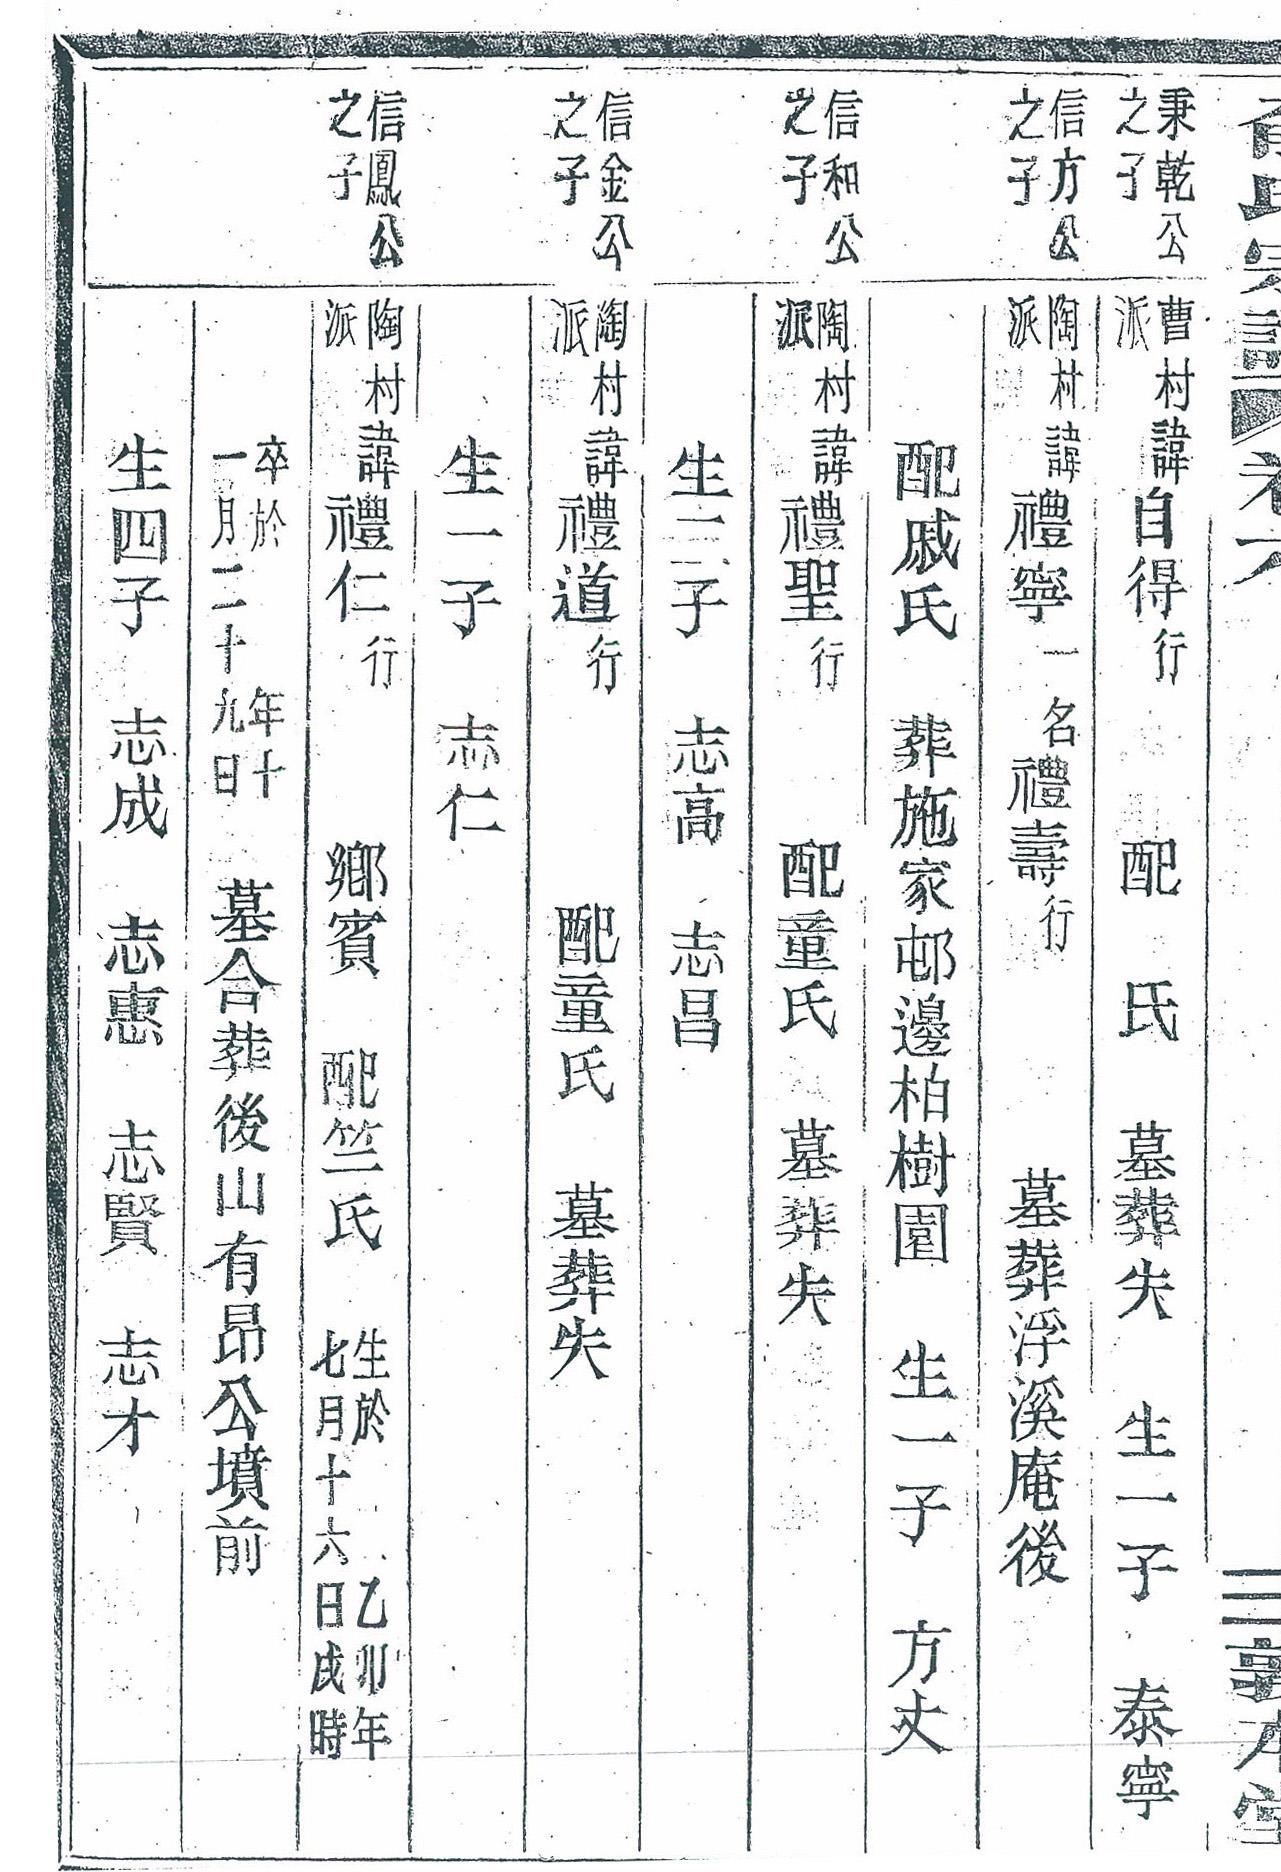 氏宗譜 卷六 敦本堂
秉乾公
之子
曹村
派
諱自得行 配 氏 墓葬失 生一子 泰寧
信方公
之子
陶村
派
諱禮寧一名禮壽行 墓葬浮溪庵後
配戚氏 葬施家邨邊柏樹園 生一子 方丈
信和公
之子
陶村
派
諱禮聖行 配童氏 墓葬失
生二子 志高 志昌
信金公
之子
陶村
派
諱禮道行 配童氏 墓葬失
生一子 志仁
信鳳公
之子
陶村
派
諱禮仁行 鄉賓 配竺氏
生於 乙卯年
七月十六日戌時
卒於 年十
一月二十九日
墓合葬後山有昂公墳前
生四子 志成 志惠 志賢 志才